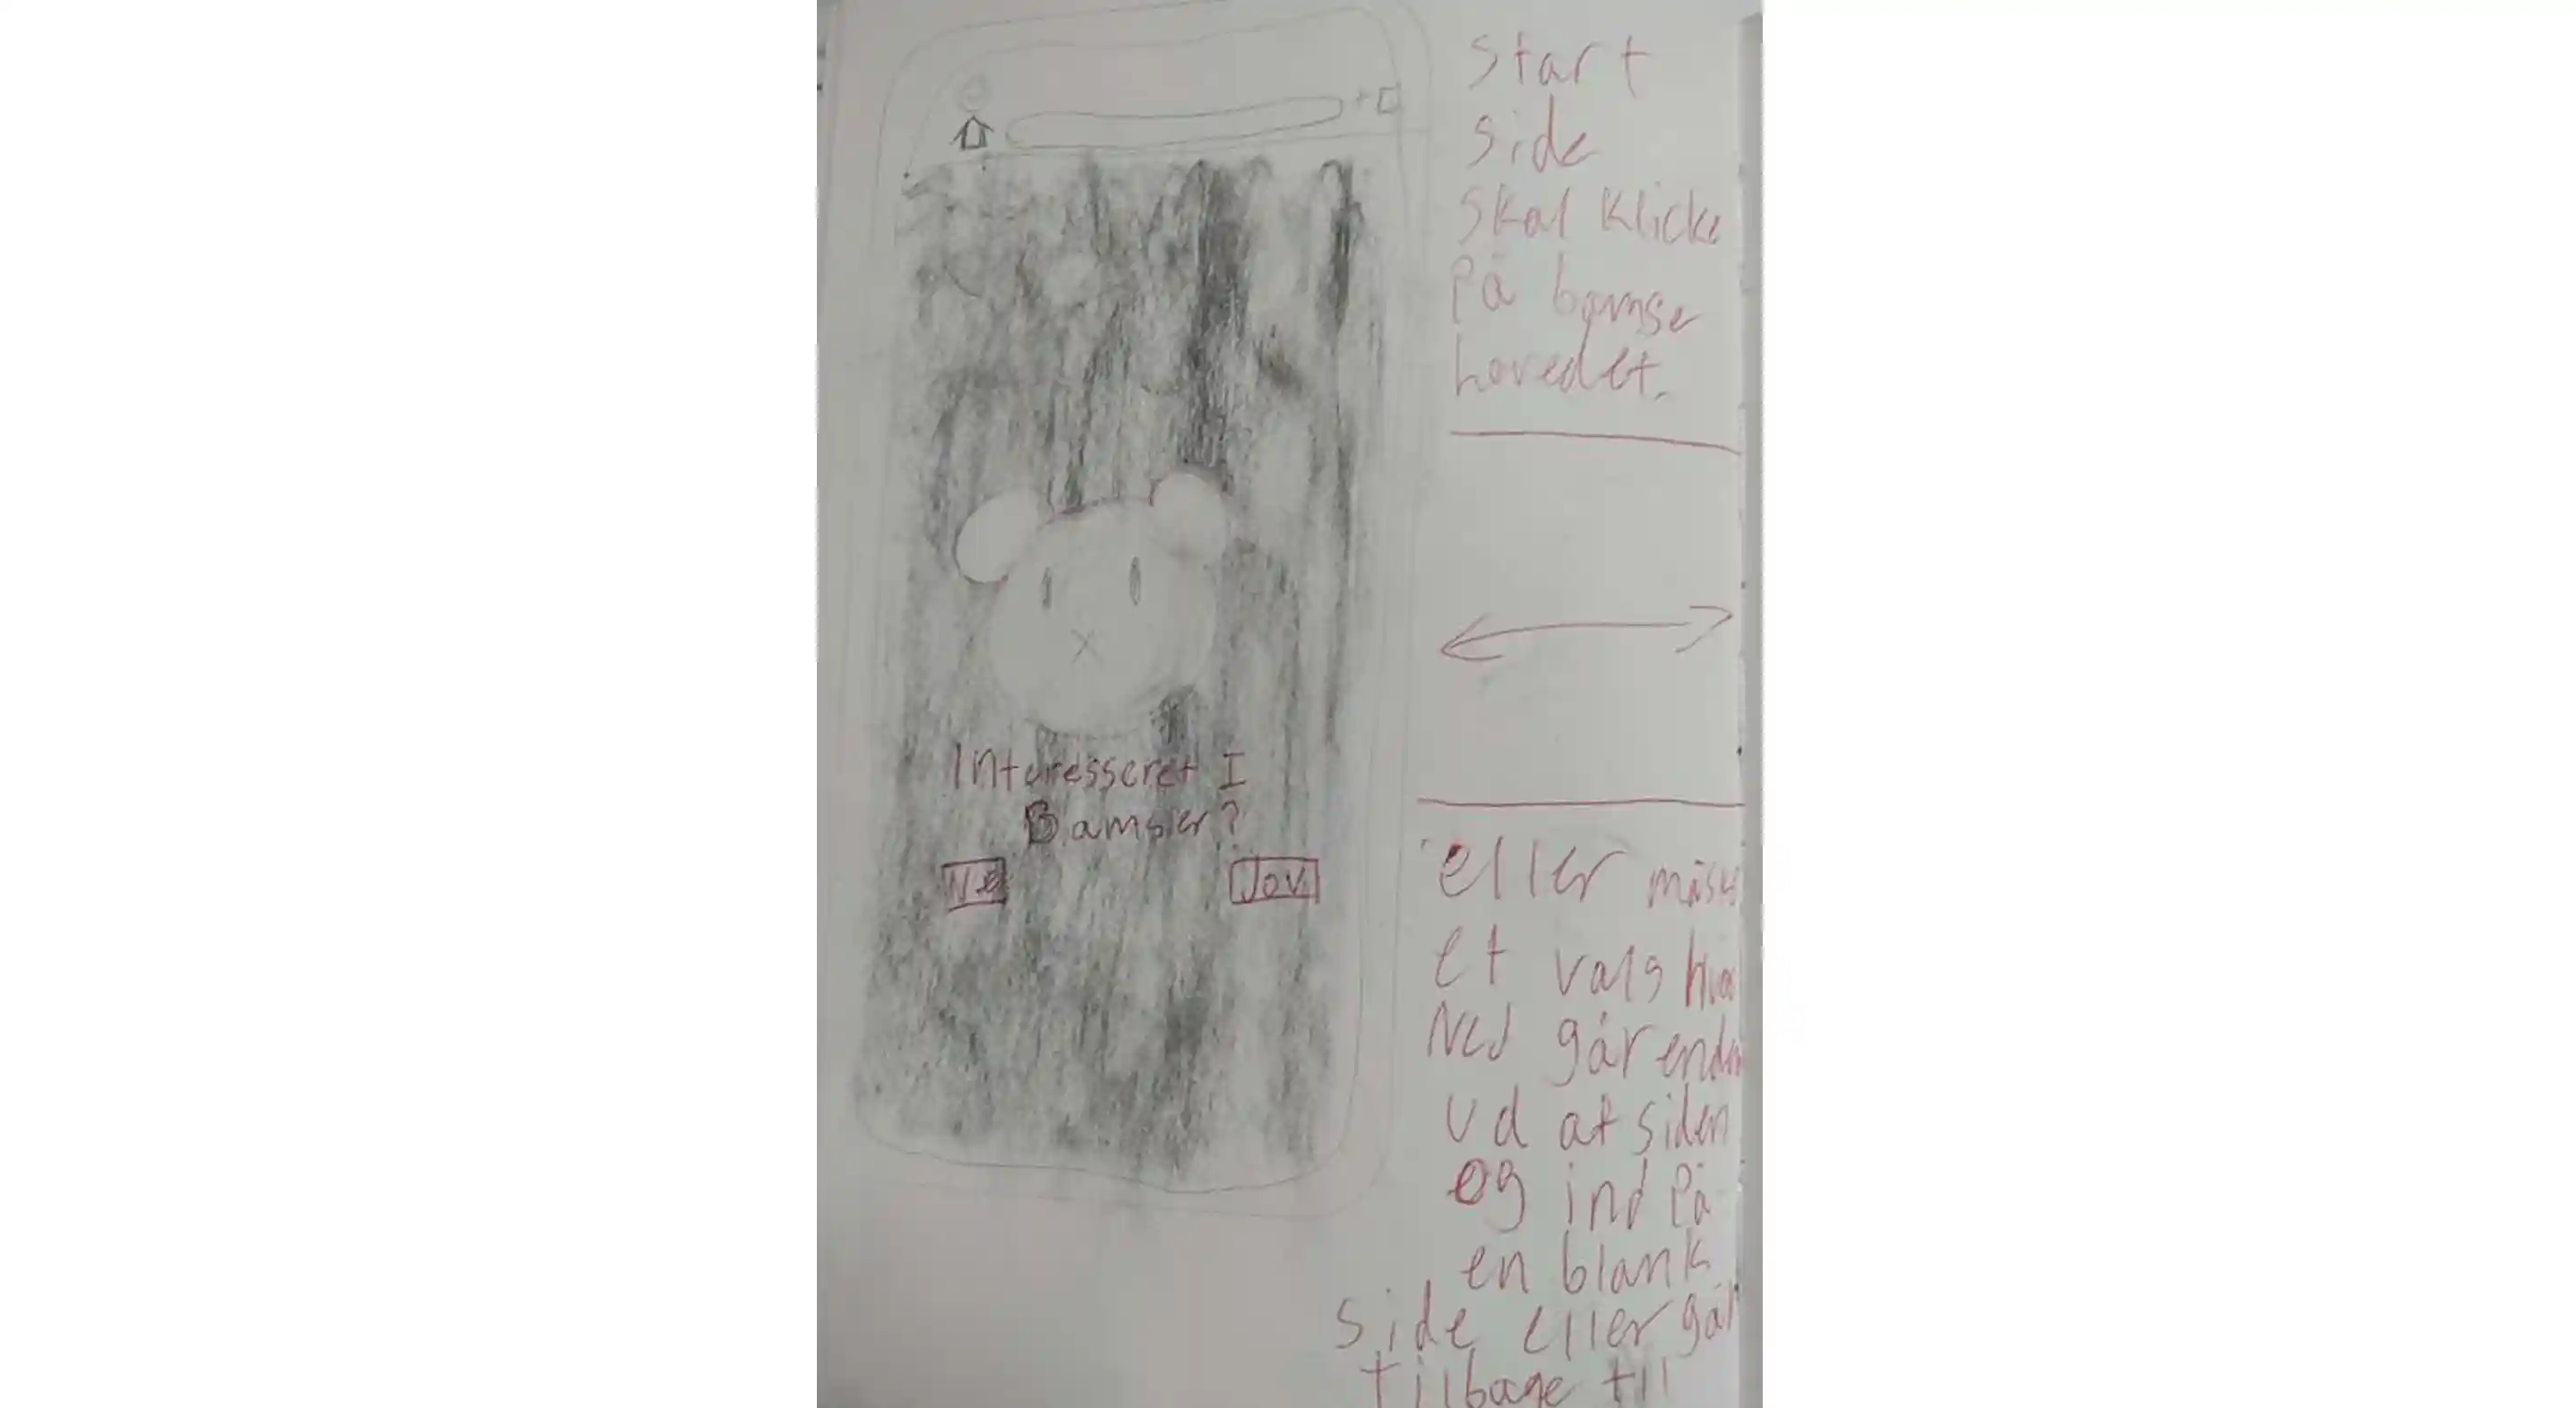 Interesseret I
Bamser?
Jov
Start
side
skal klicke
På bamse
hovedet.
eller
et valg
Nej går
ud af siden
og ind på
en blank
side eller går
tilbage til